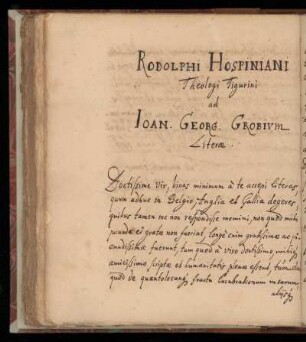 RODOLPHI HOSPINIANI
Theologi Tigurini
ad
IOAN. GEORG. GROBIVM
Literæ.
Doctissime Vir, binas minimum à te accepi literas,
quum adhuc in Belgio, Anglia et Gallia degeres
quibus tamen me non respondisse memini, non quod mihi
jucundæ et gratæ non fuerint, longè enim gratissimæ ac ju-
cundissimæ fuerunt, tum quod à viro doctissimo, mihiq;
amicissimo scriptæ et humanitatis plenæ essent, tum
quod de quantulocunq; fructu lucubrationum mearum